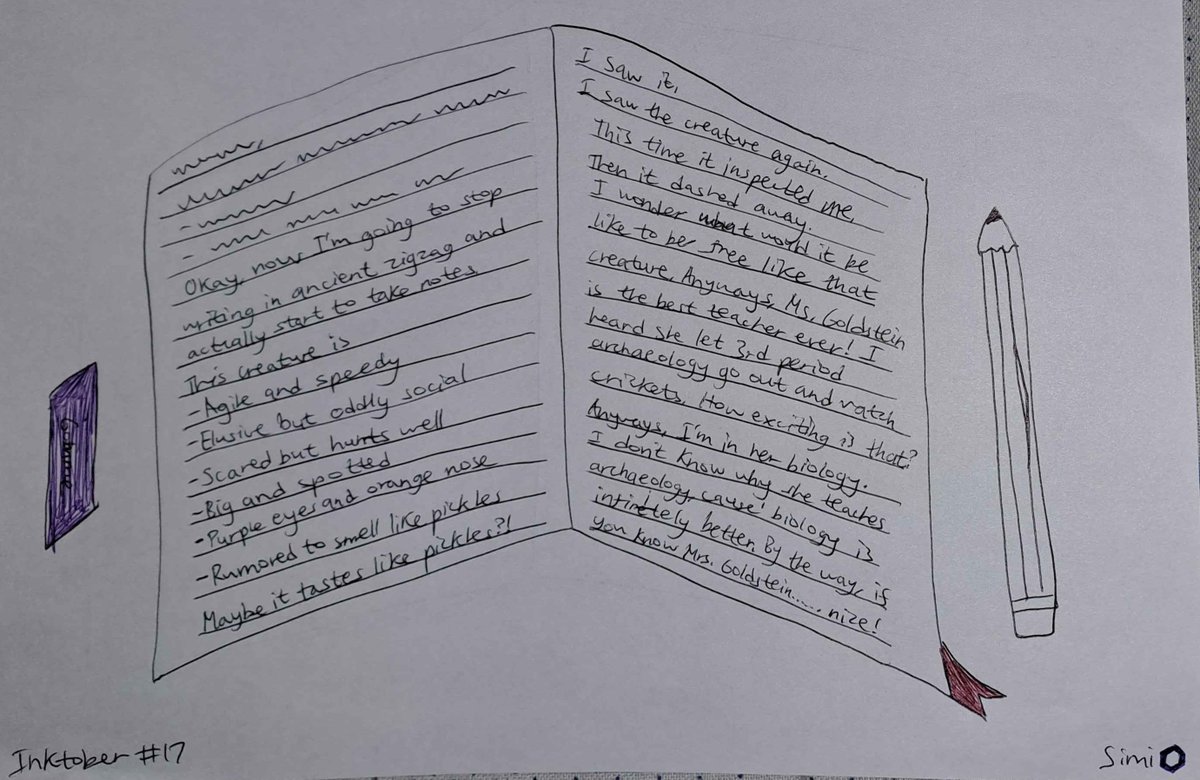 Okay, now I'm going to stop
writing in ancient zigzag and
actually start to take notes
This creature is
-Agile and speedy
-Elusive but oddly social
-Scared but hunts well
-Big and spotted
-Purple eyes and orange nose
-Rumored to smell like pickles
Maybe it tastes like pickles?!
I saw it,
I saw the creature again.
This time it inspected me.
Then it dashed away.
I wonder what would it be
like to be free like that
creature. Anyways, Ms. Goldstein
is the best teacher ever! I
heard she let 3rd period
archaeology go out and watch
crickets. How exciting is that?
Anyways, I'm in her biology.
I don't know why she teaches
archaeology cause biology is
infinetely better. By the way, if
you know Mrs. Goldstein...... nize!
Inktober #17
Simi